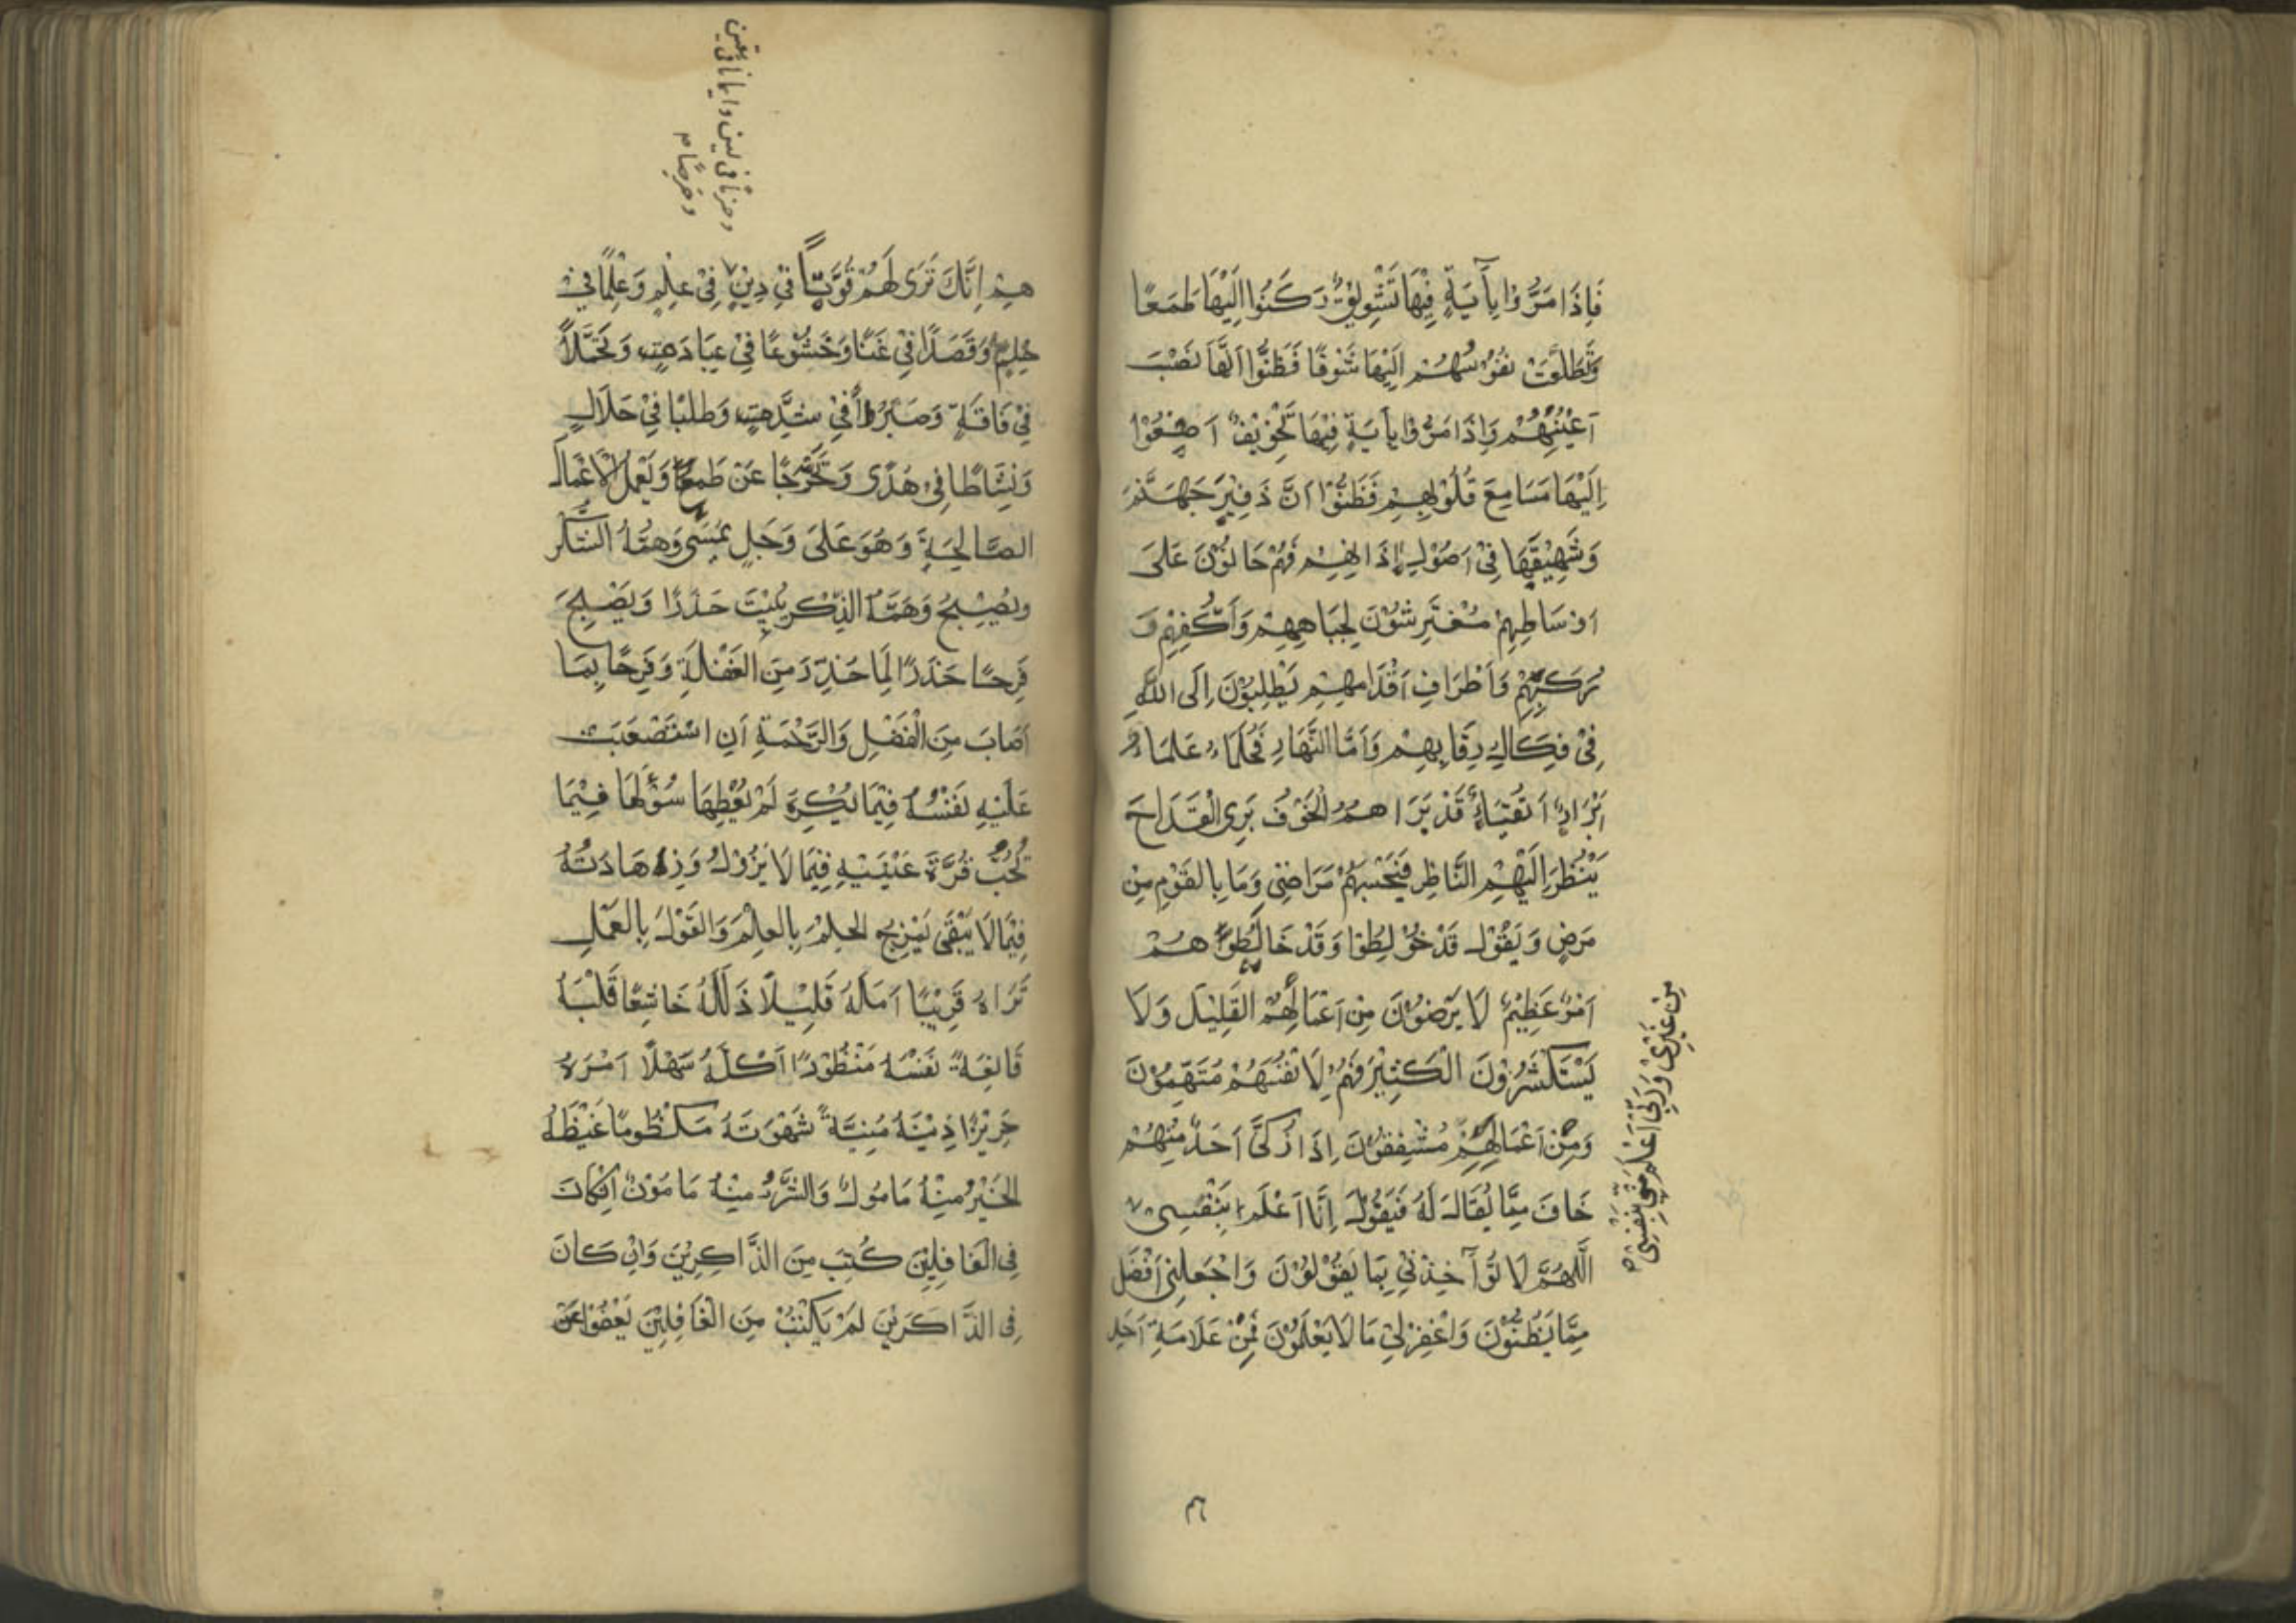 فَاِذَا مَرُّوْا بِاٰيَةٍ فِيْهَا تَشْوِيْقٌ رَكَنُوْا اِلَيْهَا طَمَعًا
وَتَطَلَّعَتْ نُفُوْسُهُمْ اِلَيْهَا شَوْقًا فَظَنُّوْا اَنَّهَا نَصْبَ
اَعْيُنِهِمْ وَاِذَا مَرُّوْا بِاٰيَةٍ فِيْهَا تَخْوِيْفٌ اَصْغَوْا
اِلَيْهَا مَسَامِعَ قُلُوْبِهِمْ فَظَنُّوْا اَنَّ ذَفِيْرَ جَهَنَّمَ
وَشَهِيْقَهَا فِيْ اُصُوْلِ اٰذَانِهِمْ فَهُمْ حَانُوْنَ عَلَى
اَوْسَاطِهِمْ مُفْتَرِشُوْنَ لِجِبَاهِهِمْ وَاَكُفِّهِمْ وَ
رُكَبِهِمْ وَاَطْرَافِ اَقْدَامِهِمْ يَطْلِبُوْنَ اِلَى اللّٰهِ
فِيْ فِكَاكِ رِقَابِهِمْ وَاَمَّا النَّهَارِ فَحُلَمَاءُ عُلَمَاءُ
اَبْرَارٌ اَتْقِيَاءُ قَدْ بَرَاهُمُ الْخَوْفُ بَرْيَ الْقِدَاحَ
يَنْظُرُ اِلَيْهِمُ النَّاظِرُ فَيَحْسَبُهُمْ مَرَاضٰى وَمَا بِالْقَوْمِ مِنْ
مَرَضٍ وَيَقُوْلُ قَدْ خُوْلِطُوْا وَقَدْ خَالَطَهُمْ
اَمْرٌ عَظِيْمٌ لَا يَرْضَوْنَ مِنْ اَعْمَالِهِمُ الْقَلِيْلَ وَلَا
يَسْتَكْثِرُوْنَ الْكَثِيْرَ فَهُمْ لِاَنْفُسِهُمْ مُتَّهِمُوْنَ
وَمِنْ اَعْمَالِهِمْ مُشْفِقُوْنَ اِذَا زُكِّيَ اَحَدٌ مِنْهُمْ
خَافَ مِمَّا يُقَالُ لَهُ فَيَقُوْلُ اِنَّا اَعْلَمُ بِنَفْسِى
اَللّٰهُمَّ لَا تُؤَاخِذْنِيْ بِمَا يَقُوْلُوْنَ وَاجْعَلْنِيْ اَفْضَلَ
مِمَّا يَظُنُّوْنَ وَاغْفِرْ لِيْ مَا لَا يَعْلَمُوْنَ فَمِنْ عَلَامَةِ اَحَدِ
مِنْ غَيْرِىْ وَرَبِّىْ اَعْلَمُ مِنِّىْ بِنَفْسِىْ
هِمْ اِنَّكَ تَرَى لَهُمْ قُوَّةً فِيْ دِيْنٍ فِيْ عِلْمٍ وَعِلْمًا فِيْ
حِلْمٍ وَقَصْدًا فِيْ غِنًا وَخُشُوْعًا فِيْ عِبَادَةٍ وَتَحَمُّلًا
فِيْ فَاقَةٍ وَصَبْرًا فِيْ شِدَّةٍ وَطَلَبًا فِيْ حَلَالٍ
وَنِشَاطًا فِيْ هُدًى وَتَحَرُّجًا عَنْ طَمَعٍ وَيَعْمَلُ الْاَعْمَالَ
الصَّالِحَةَ وَهُوَ عَلَى وَجَلٍ يُمْسِيْ وَهَمُّهُ الشُّكْرُ
وَيُصْبِحُ وَهَمُّهُ الذِّكْرُ يَبِيْتُ حَذَرًا وَيُصْبِحُ
فَرِحًا حَذَرًا لِمَا حُذِّرَ مِنَ الْغَفْلَةِ وَفَرِحًا بِمَا
اَصَابَ مِنَ الْفَضْلِ وَالرَّحْمَةِ اَنِ اسْتَصْعَبَتْ
عَلَيْهِ نَفْسُهُ فِيْمَا يُكْرِهُ لَمْ يُعْطِهَا سُؤْلَهَا فِيْمَا
تُحِبُّ قُرَّةُ عَيْنَيْهِ فِيْمَا لَا يَزُوْلُ وَزِهَادَتُهُ
فِيْمَا لَا يَبْقَى يَمْزِجُ الْحِلْمَ بِالْعِلْمِ وَالْقَوْلَ بِالْعَمَلِ
تَرَاهُ قَرِيْبًا اَمَلَهُ قَلِيْلًا ذَلَلُهُ خَاشِعًا قَلْبَهُ
قَانِعَةً نَفْسُهُ مَنْظُوْرًا اَكْلُهُ سَهْلًا اَمْرُهُ
حَرِيْزًا دِيْنُهُ مُيِّتَةً شَهْوَتُهُ مَكْظُومًا غَيْظُهُ
الْخَيْرُ مِنْهُ مَامُولٌ وَالشَّرُّ مِنْهُ مَامُوْنٌ اِنْ كَانَ
فِى الْغَافِلِيْنَ كُتِبَ مِنَ الذَّاكِرِيْنَ وَاِنْ كَانَ
فِى الذَّاكِرِيْنَ لَمْ يُكْتَبْ مِنَ الْغَافِلِيْنَ يَعْفُوْا عَنْ
وحزمًا فى لين وايمانا فى يقين
وحرصًا م